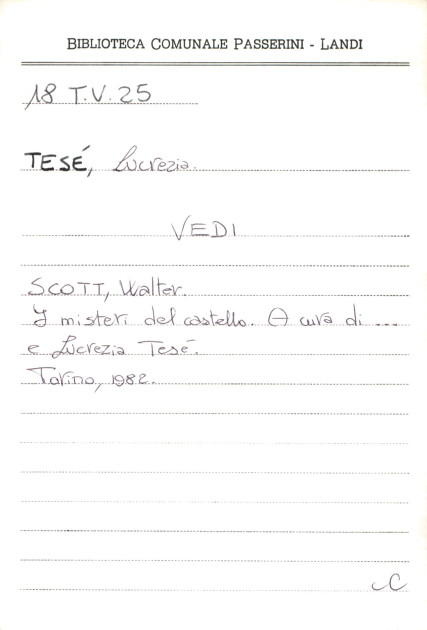 BIBLIOTECA COMUNALE PASSERINI - LANDI
18 T.V. 25
TESÉ, Lucrezia.
VEDI
SCOTT, Walter.
I misteri del castello. A cura di ...
e Lucrezia Tesé.
Torino, 1982.
C